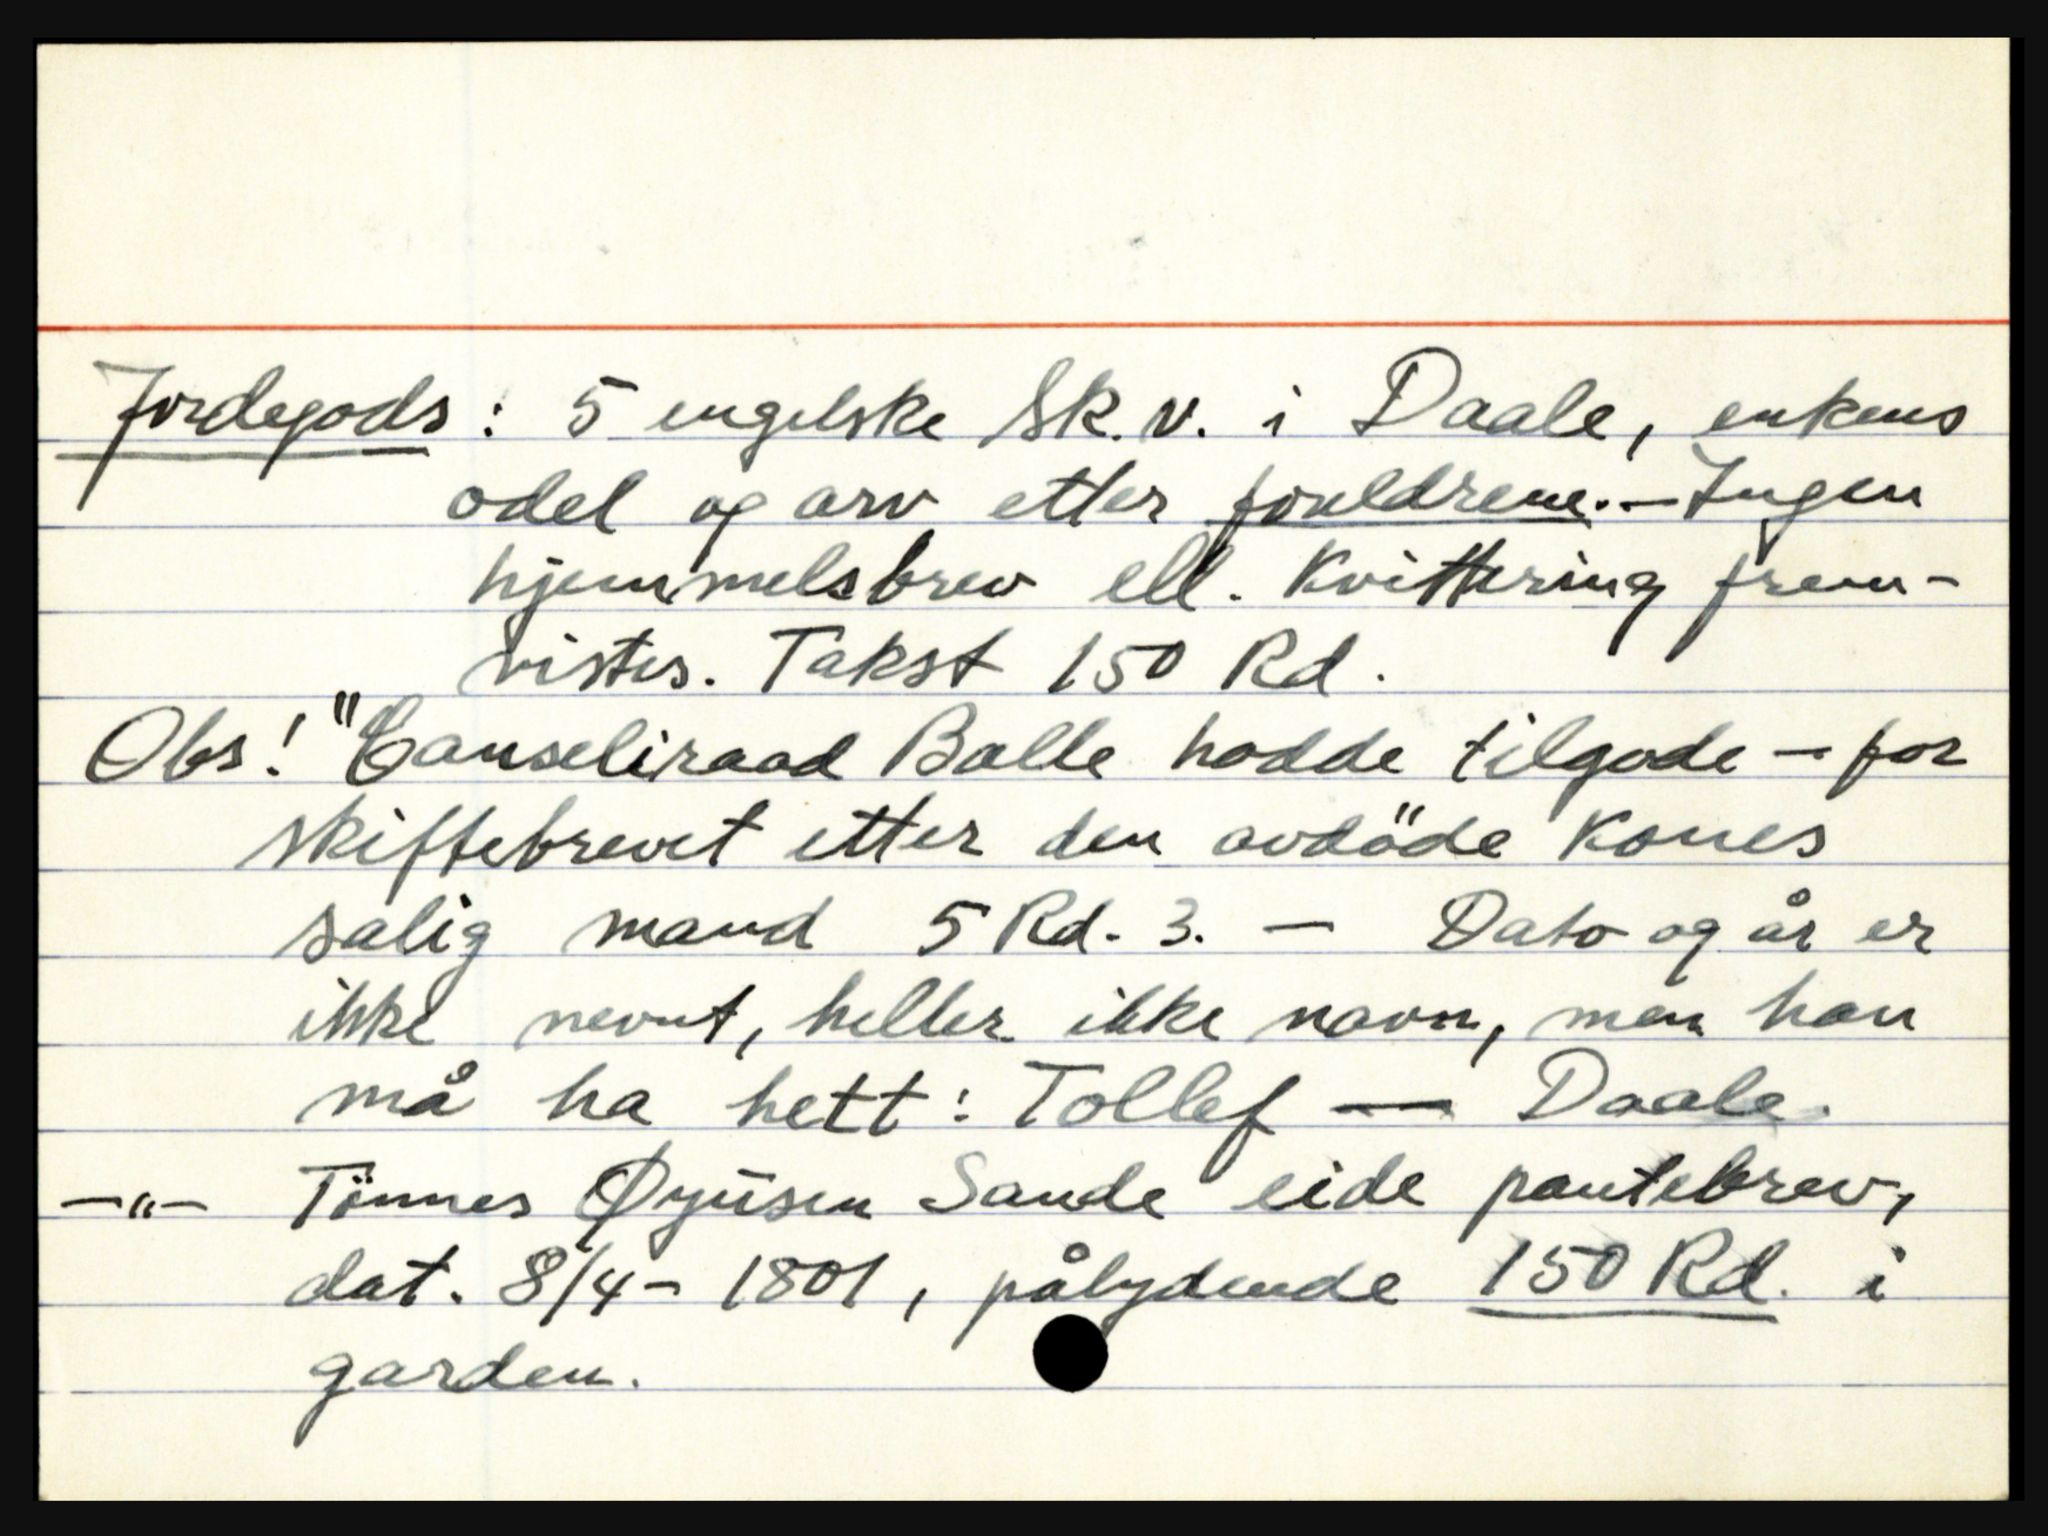 Jordegods: 5 engelske Sk. v. i Daale, enkens
odel og arv etter foreldrene. — Ingen
hjemmelsbrev ell. kvittering frem-
vistes. Takst 150 Rd.
Obs! "Canseliraad Balle hadde tilgode — for
skiftebrevet etter den avdöde kones
salig mand 5 Rd. 3. — Dato og år er
ikke nevnt, heller ikke navn, men han
må ha hett: Tollef — Daale.
—"— Tönnes Øyüsen Sande eide pantebrev,
dat. 8/4 - 1801, pålydende 150 Rd. i
garden.